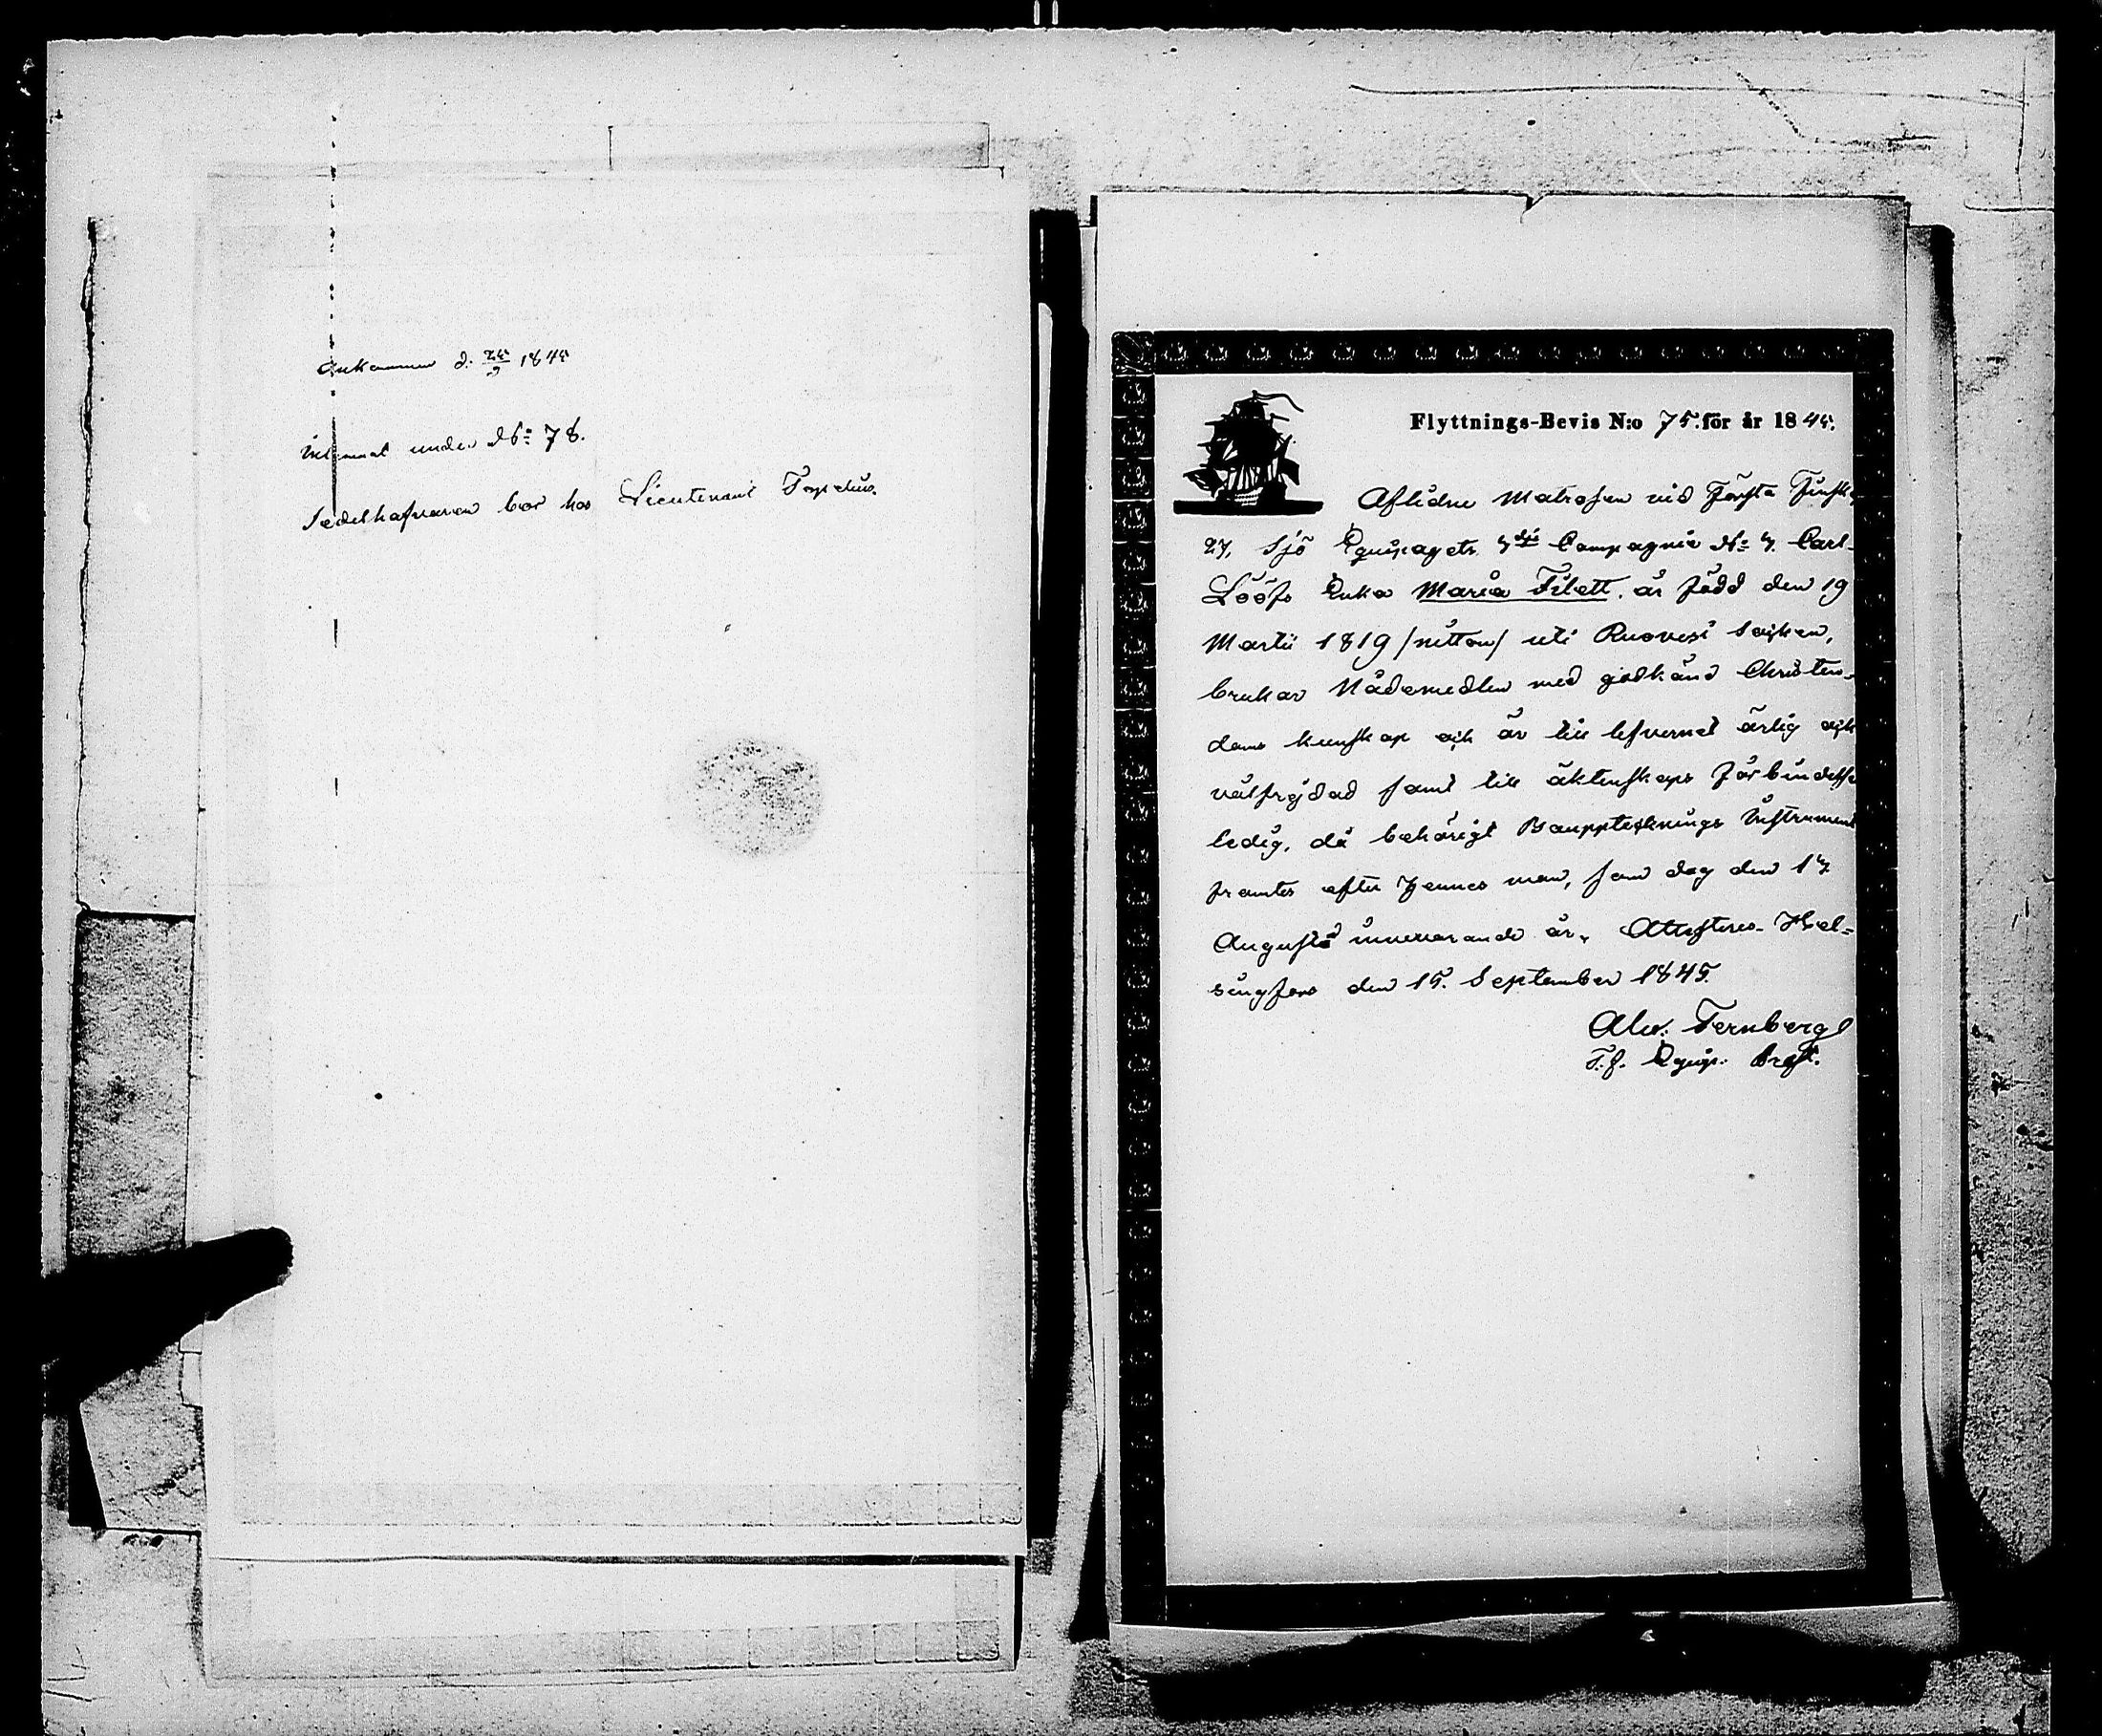 Ankommen d: 25/9 1845
Inlemnat under No: 78.
Sedelhafvaren bor hos Lieutenant Topelius.
Flyttnings-Bevis N:o 75. för år 1845.
Aflidne Matrosen vid Första Finska
27. Sjö Equipagets 4de Compagnie No: 4. Carl
Lööfs Enka Maria Filett, är född den 19
Martii 1819 /nitton/ uti Ruovesi Socken,
brukar Nådemedlen med godkänd Christen-
doms kunskap och är till lefvernet ärlig och
välfrejdad samt till äktenskaps förbindelse
ledig, då behörigt Bouppteknings Instrument
framtes efter hennes man, som dog den 14
Augusti innevarande år, Attesteres Hel-
singfors den 15. September 1845.
Alex: Fernberg
T.f. Equip: Prest.